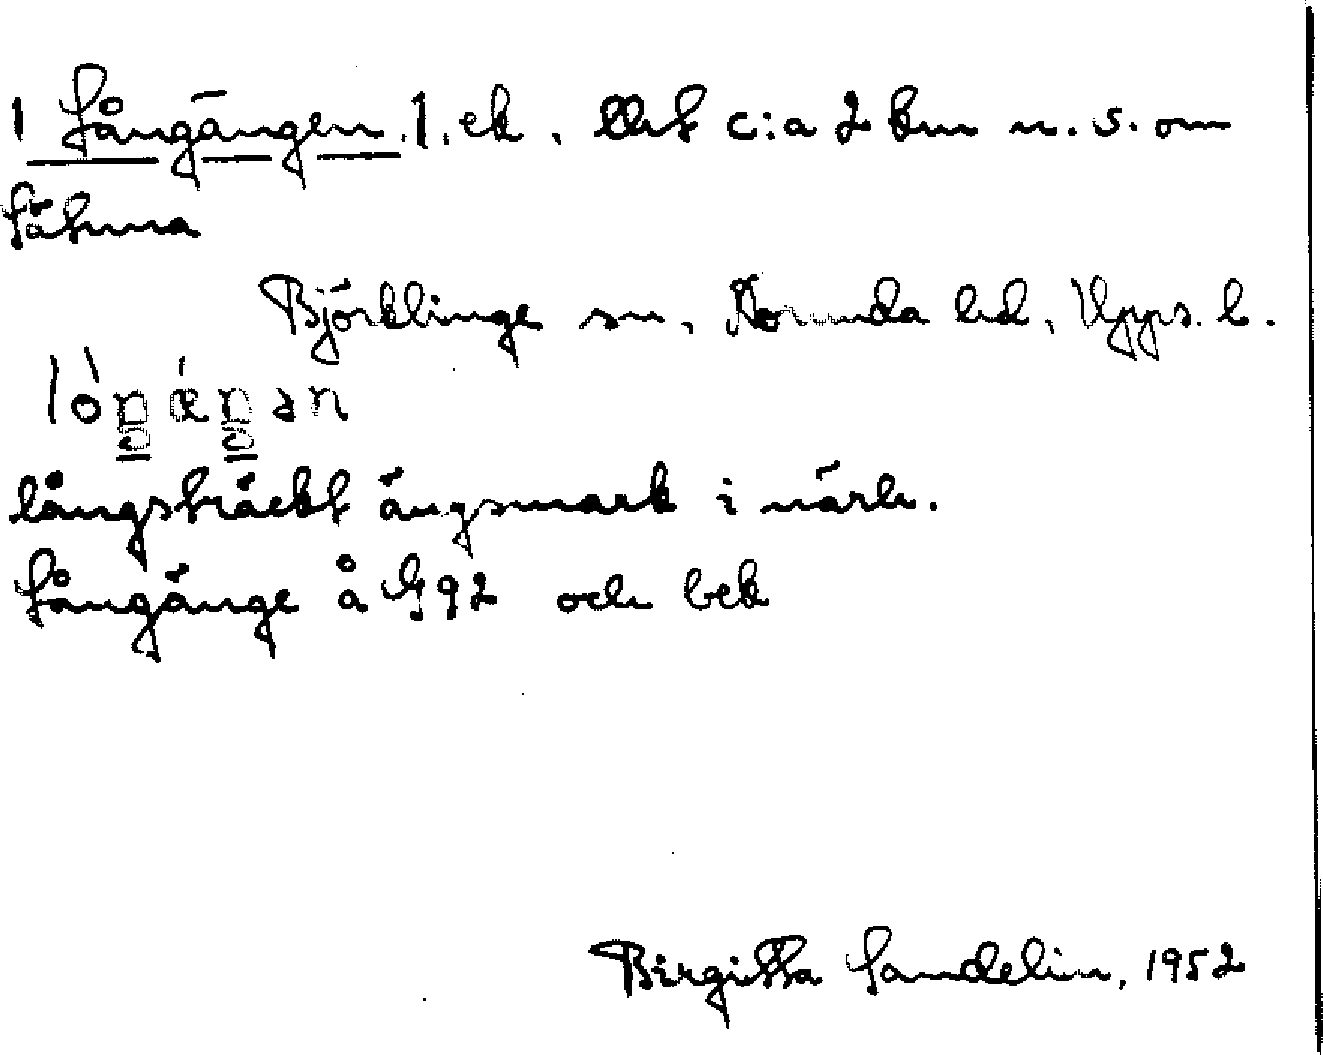 1 Långängen. 1. ek. Urf c:a 2 km n. v. om
Lätuna
Björklinge sn, Norunda hd, Upps. l.
lòŋǽŋan
långsträckt ängsmark i närh.
Långänge å G 92 och bek
Birgitta Sandelin, 1952